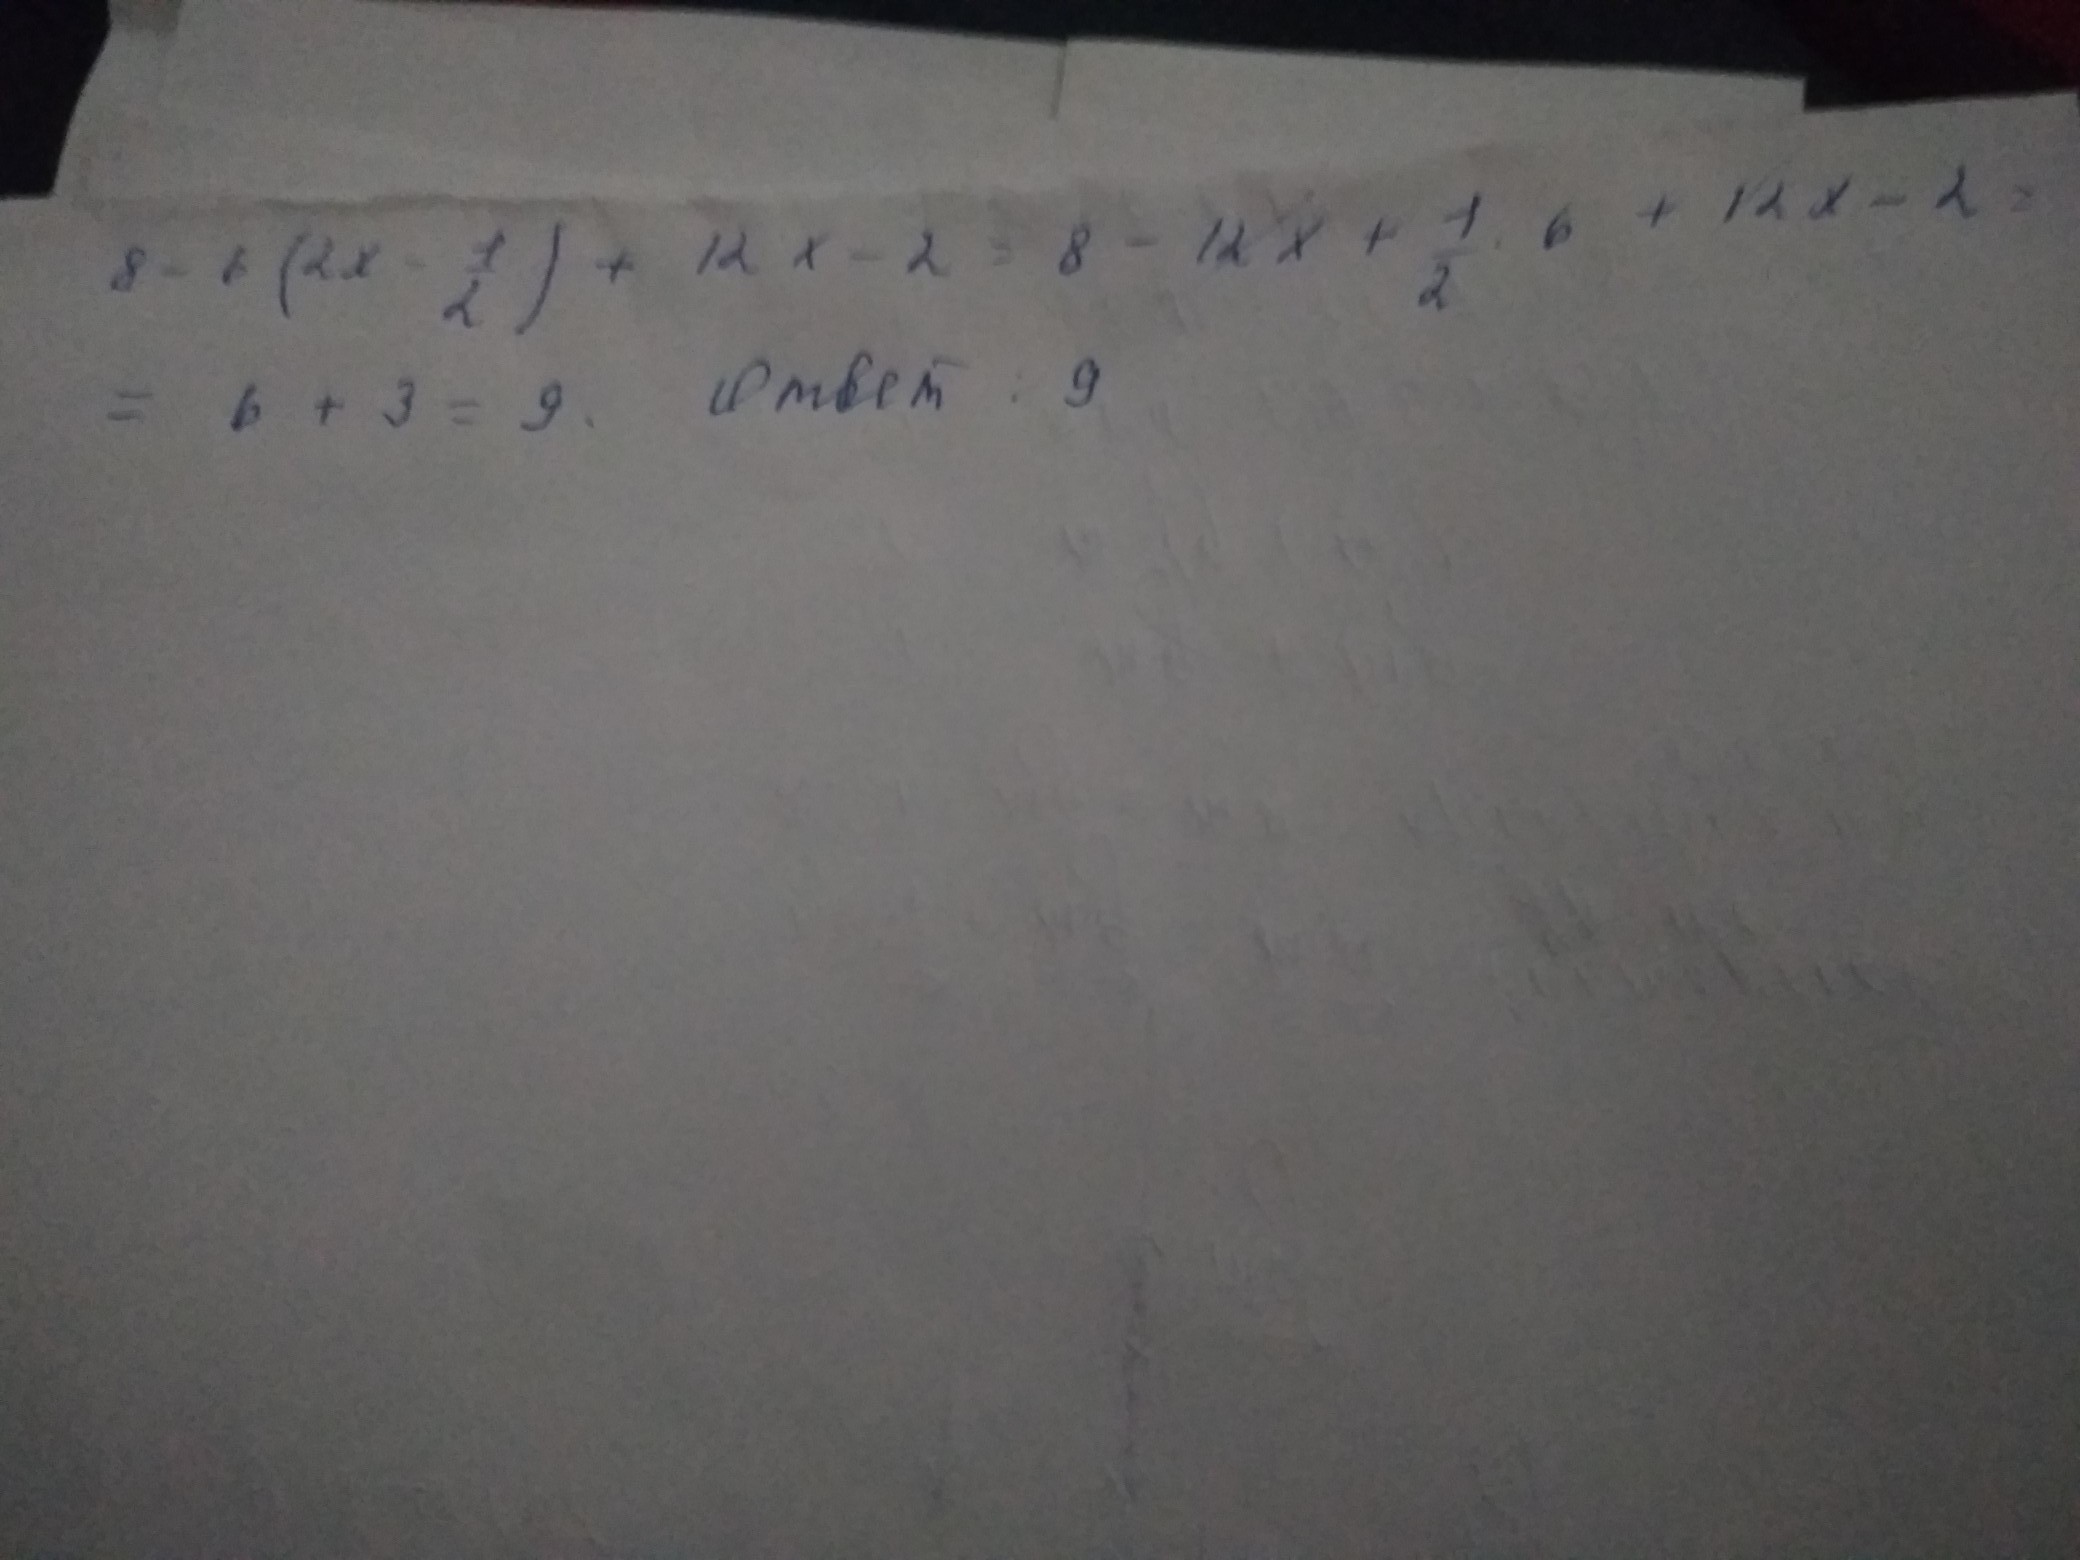 8 - 6(2x - 1/2) + 12x - 2 = 8 - 12x + 1/2 · 6 + 12x - 2 =
= 6 + 3 = 9. Ответ : 9